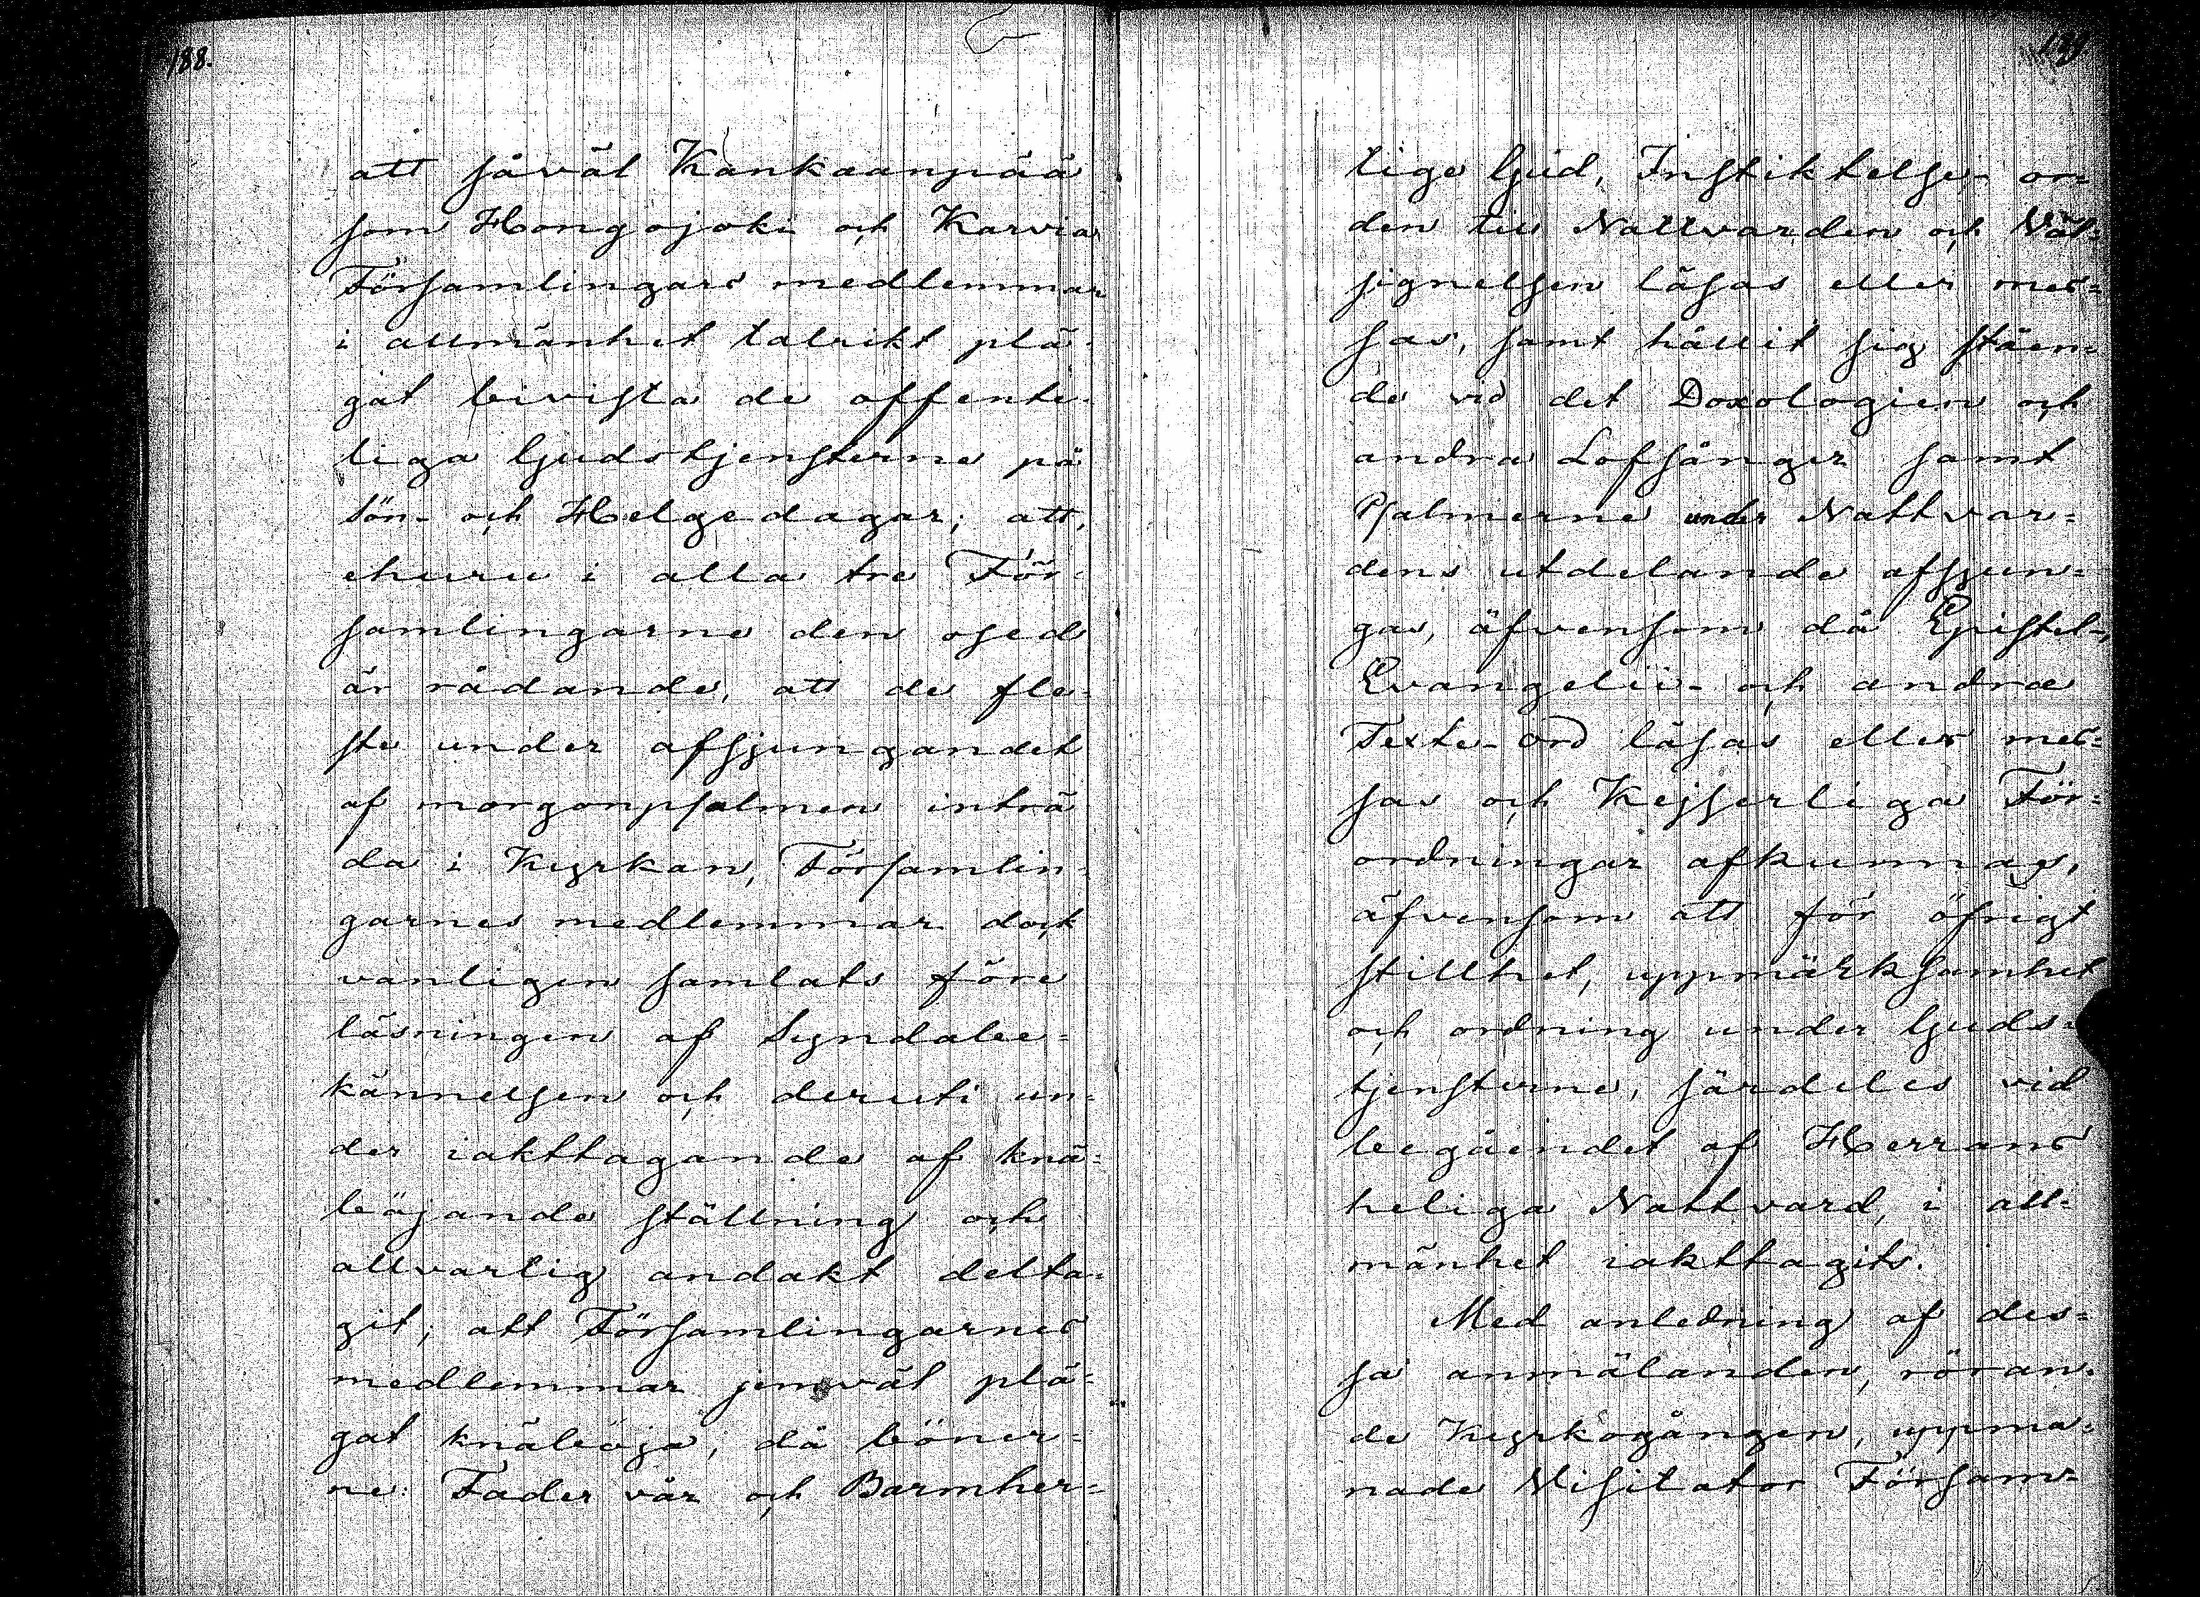 188.
att såväl Kankaanpää
som Hongojoki och Karvia
Församlingars medlemmar
i allmänhet talrikt plä-
gat bivista de offente-
liga Gudstjensterne på
Sön- och Helgedagar; att,
ehuru i alla tre För-
samlingarne den osed
är rådande, att de fle-
ste under afsjungandet
af morgonpsalmen inträ
da i Kyrkan, Församlin-
garnes medlemmar dock
vanligen samlats före
läsningen af Syndabe=
kännelsen och deruti un-
der iakttagande af knä=
böjande ställning och
allvarlig andakt delta=
git; att Församlingarnes
medlemmar jemväl plä=
gat knäböja, då böner=
ne: Fader vår och Barmher=
tige Gud, Instiktelse- or=
den till Nattvarden och Väl=
signelsen läsas eller mes=
sas, samt hållit sig ståen=
de vid det Doxologien och
andra Lofsånger samt
Psalmerne under Nattvar=
dens utdelande afsjun=
gas, äfvensom då Epistel-,
Evangelii- och andra
Texte-ord läsas eller mes=
sas och Kejserliga För=
ordningar afkunnas,
äfvensom att för öfrigt
stillhet, uppmärksamhet
och ordning under Guds=
tjensterne, särdeles vid
begåendet af Herrans
heliga Nattvard, i all=
mänhet iakttagits.
Med anledning af des=
sa anmälanden, röran-
de Kyrkogången, uppma=
nade Visitator Försam=